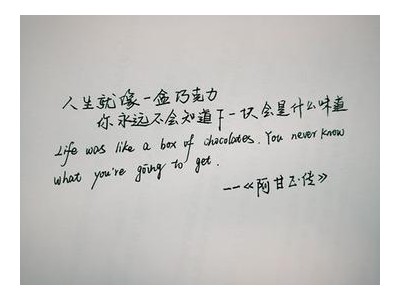 人生就像一盒巧克力
你永远不会知道下一块会是什么味道
Life was like a box of chocolates. You never know
what you're going to get.
--《阿甘正传》